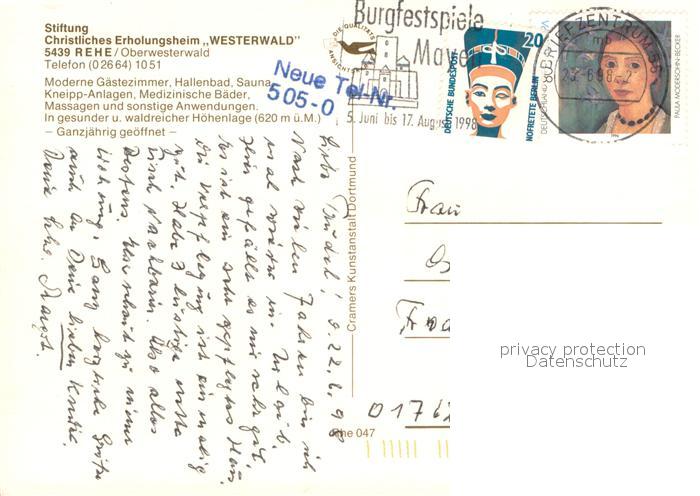 Stiftung
Christliches Erholungsheim „WESTERWALD"
5439 REHE/Oberwesterwald
Telefon (02664) 1051
Moderne Gästezimmer, Hallenbad, Sauna,
Kneipp-Anlagen, Medizinische Bäder,
Massagen und sonstige Anwendungen.
In gesunder u. waldreicher Höhenlage (620 m ü.M.)
– Ganzjährig geöffnet –
Neue Tel-Nr.
505-0
DIE QUALITÄTS
ANSICHTS
Burgfestspiele
Mayen
5. Juni bis 17. August 1998
DEUTSCHE BUNDESPOST
20
NOFRETETE BERLIN
BRIEFZENTRUM 56
mb
DEUTSCHLAND
PAULA MODERSOHN-BECKER
Liebe Trudel! d. 22.6.98
Nach vielen Jahren bin ich
mal wieder in Urlaub.
Hier gefällt es mir sehr gut,
es ist ein sehr gepflegtes Haus
die Verpflegung ist einmalig
gut. Habe 3 lustige nette
Tischnachbarn. Also alles
bestens.
Ganz herzliche Grüße
auch an Deine lieben Kinder
Deine
Margot.
Cramers Kunstanstalt Dortmund
Rehe 047
Frau
0176
privacy protection
Datenschutz